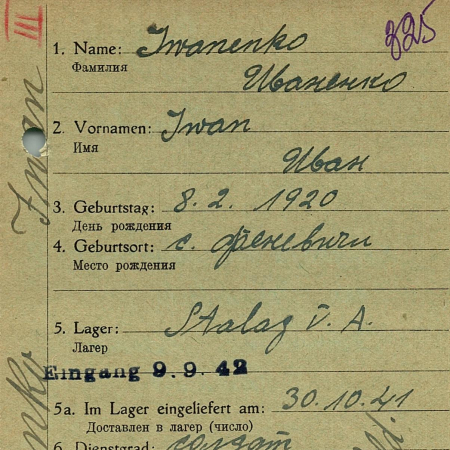 III
325
1. Name: Iwanenko
Фамилия
Иваненко
2. Vornamen: Iwan
Имя
Иван
3. Geburtstag: 8. 2. 1920
День рождения
4. Geburtsort: с. Феневичи
Место рождения
5. Lager: Stalag V. A.
Лагер
Eingang 9.9.42
5a. Im Lager eingeliefert am: 30.10.41
Доставлен в лагер (число)
6. Dienstgrad: солдат
Iwan
nko